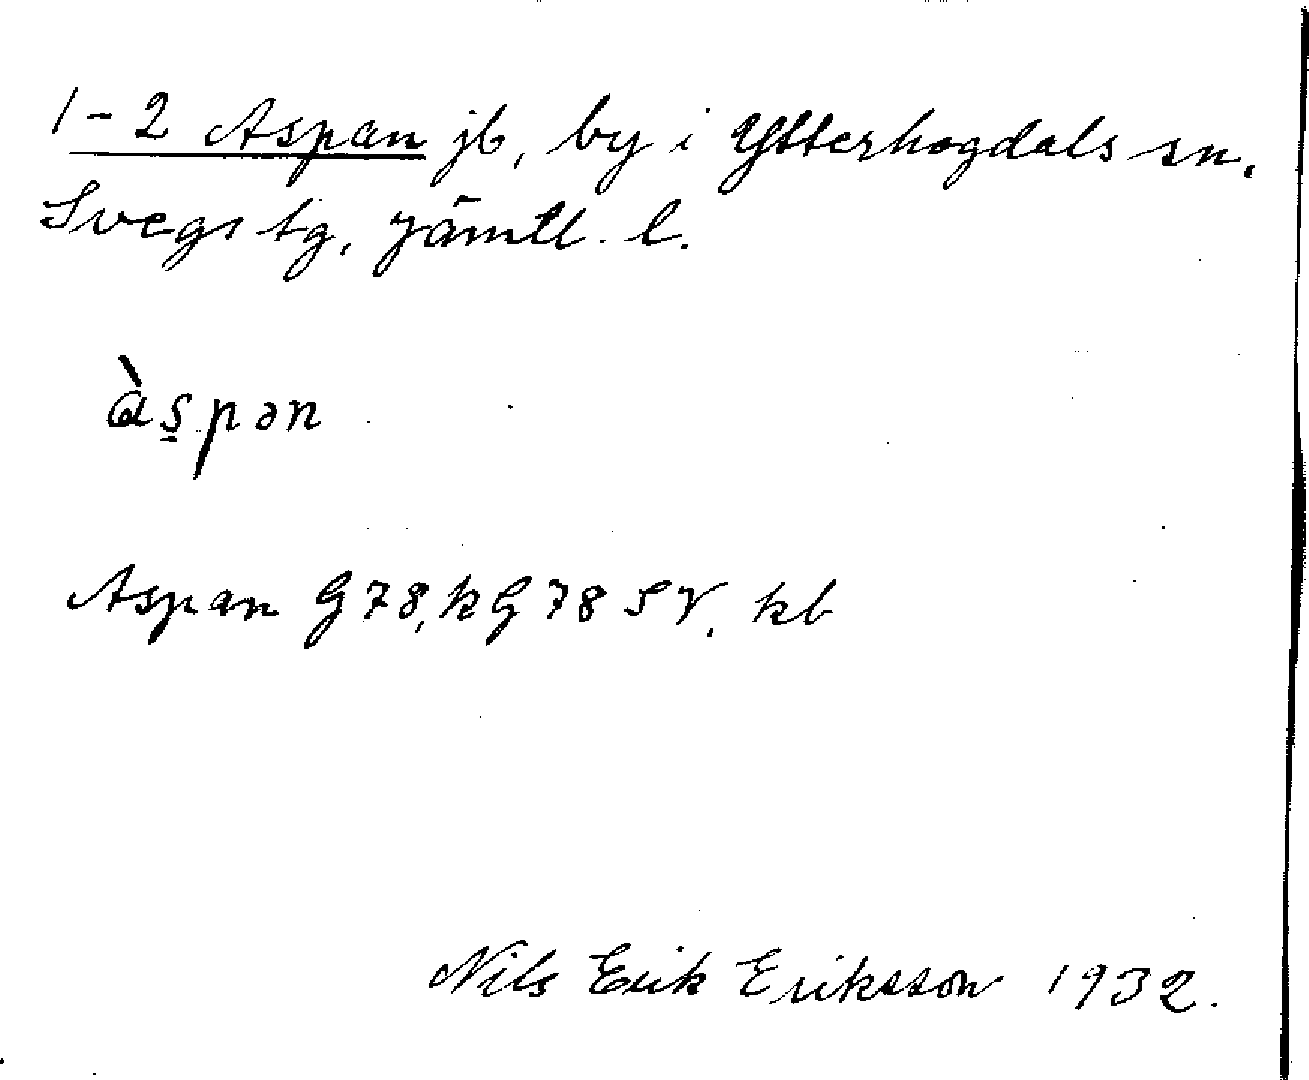 1-2 Aspan jb, by i Ytterhogdals sn.
Svegs tg, Jämtl. l.
às̱pən
Aspan G78, kG 78 SV, kb
Nils Erik Eriksson 1932.